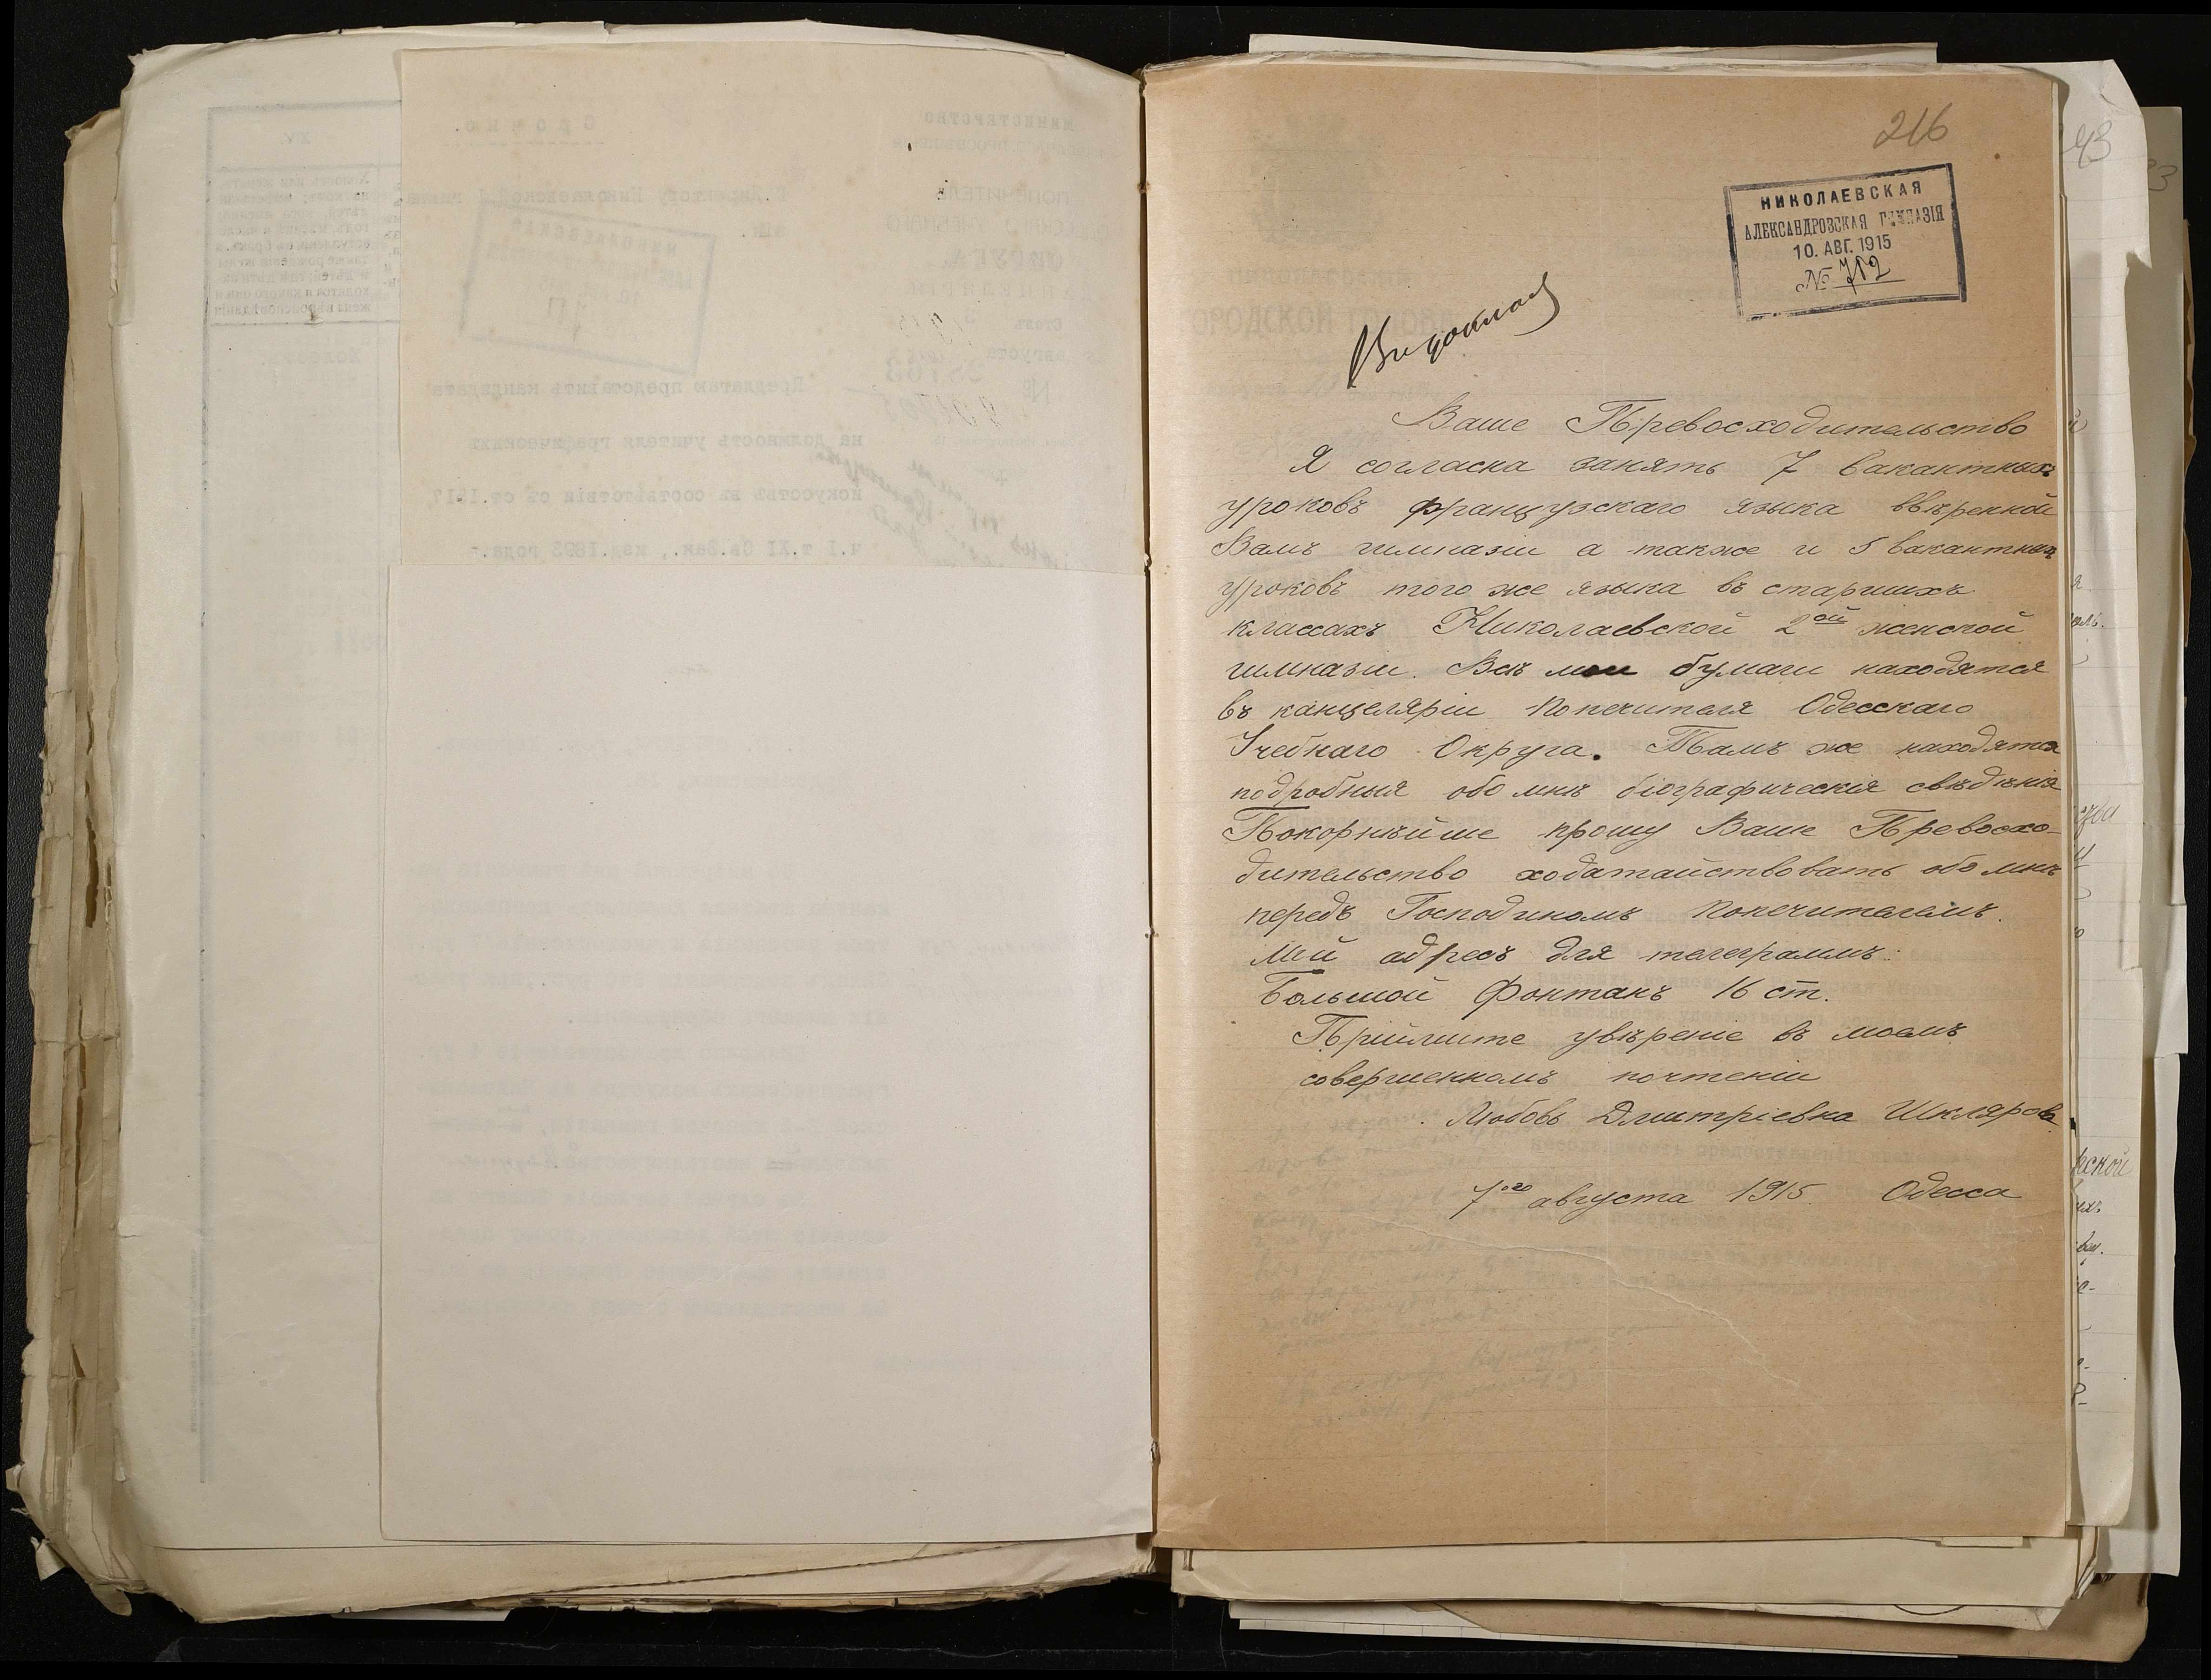 216
НИКОЛАЕВСКАЯ
АЛЕКСАНДРОВСКАЯ ГИМНАЗІЯ
10. АВГ. 1915
№ 712
Ваше Превосходительство
Я согласна занять 7 вакантныхъ
уроковъ французскаго языка ввѣренной
Вамъ гимназіи а также и 5 вакантныхъ
уроковъ того же языка въ старшихъ
классахъ Николаевской 2ой женской
гимназіи. Всѣ мои бумаги находятся
въ канцеляріи Попечителя Одесскаго
Учебнаго Округа. Тамъ же находятся
подробныя обо мнѣ біографическія свѣдѣнія
Покорнѣйше прошу Ваше Превосхо-
дительство ходатайствовать обо мнѣ
передъ Господиномъ Попечителемъ.
Мой адресъ для телеграммъ:
Большой Фонтанъ 16 ст.
Пріймите увѣреніе въ моемъ
совершенномъ почтеніи
Любовь Дмитріевна Шкляров
7ого августа 1915 Одесса